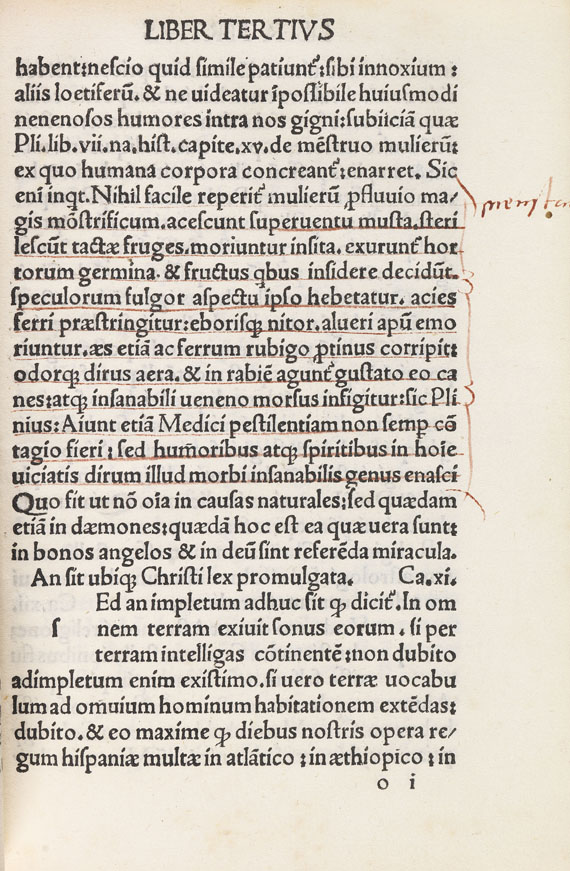 LIBER TERTIVS
habent:nescio quid simile patiunt᷑:sibi innoxium :
aliis loetiferũ. & ne uideatur īpossibile huiusmodi
nenenosos humores intra nos gigni:subiiciā quæ
Pli.lib.vii.na.hist.capite.xv.de mēstruo mulierũ:
ex quo humana corpora concreant᷑:enarret. Sic
enī inqt.Nihil facile reperit᷑ mulierũ ꝓfluuio ma⸗
gis mõstrificum.acescunt superuentu musta.steri
lescũt tactæ fruges.moriuntur insita. exurunt᷑ hor
torum germina. & fructus qbus insidere decidũt.
speculorum fulgor aspectu ipso hebetatur. acies
ferri præstringitur:eborisꝗ nitor.aluei apũ emo
riuntur.æs etiā ac ferrum rubigo ꝓtinus corripit:
odorꝗ dirus aera. & in rabiē agunt᷑ gustato eo ca
nes:atꝗ insanabili ueneno morsus infigitur:sic Pli
nius: Aiunt etiā Medici pestilentiam non semp cõ
tagio fieri : sed humoribus atꝗ spiritibus in hoīe
uiciatis dirum illud morbi insanabilis genus enasci
Quo fit ut nõ oīa in causas naturales:sed quædam
etiā in dæmones:quædā hoc est ea quæ uera sunt:
in bonos angelos & in deũ sint referēda miracula.
An sit ubiꝗ Christi lex promulgata. Ca.xi.
Ed an impletum adhuc sit ꝙ dicit᷑.In om
s nem terram exiuit sonus eorum . si per
terram intelligas cõtinentē:non dubito
adimpletum enim existimo.si uero terræ uocabu
lum ad omuium hominum habitationem extēdas:
dubito. & eo maxime ꝙ diebus nostris opera re⸗
gum hispaniæ multæ in atlātico : in æthiopico : in
o i